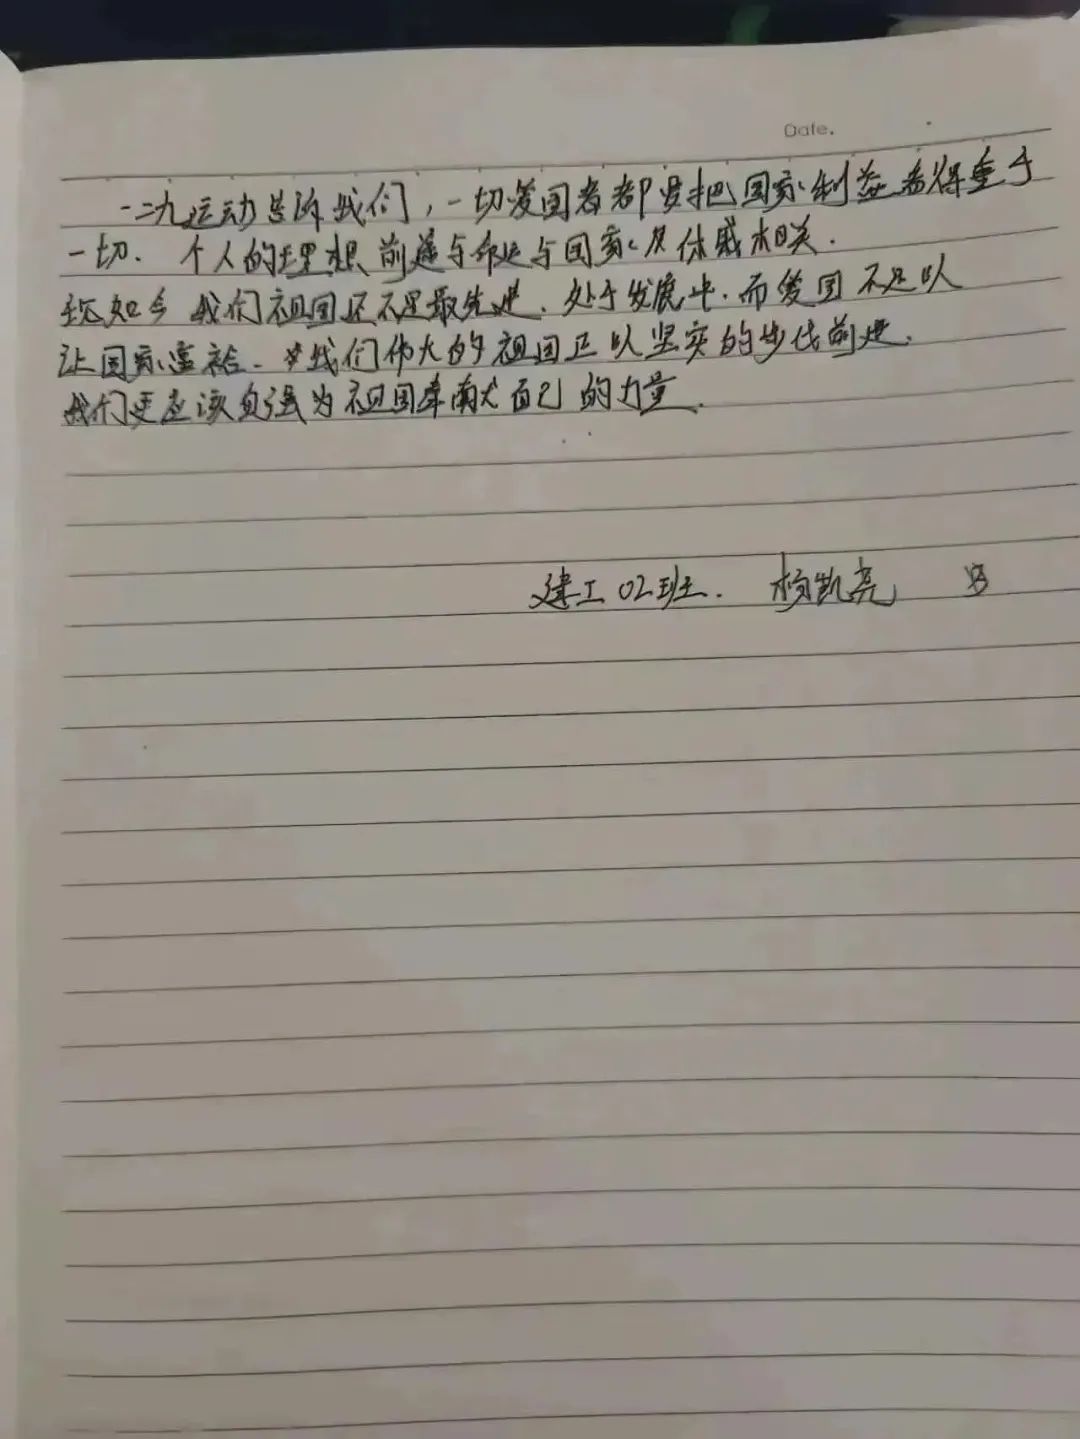 Date.
一二九运动告诉我们，一切爱国者都要把国家利益看得重于
一切. 个人的理想前途与命运与国家 休戚相关.
现如今 我们祖国还不是最先进. 处于发展中. 而爱国不足以
让国家富裕. 我们伟大的祖国正以坚实的步伐前进.
我们更应该自强为祖国奉献自己的力量.
建工02班. 杨凯亮 男